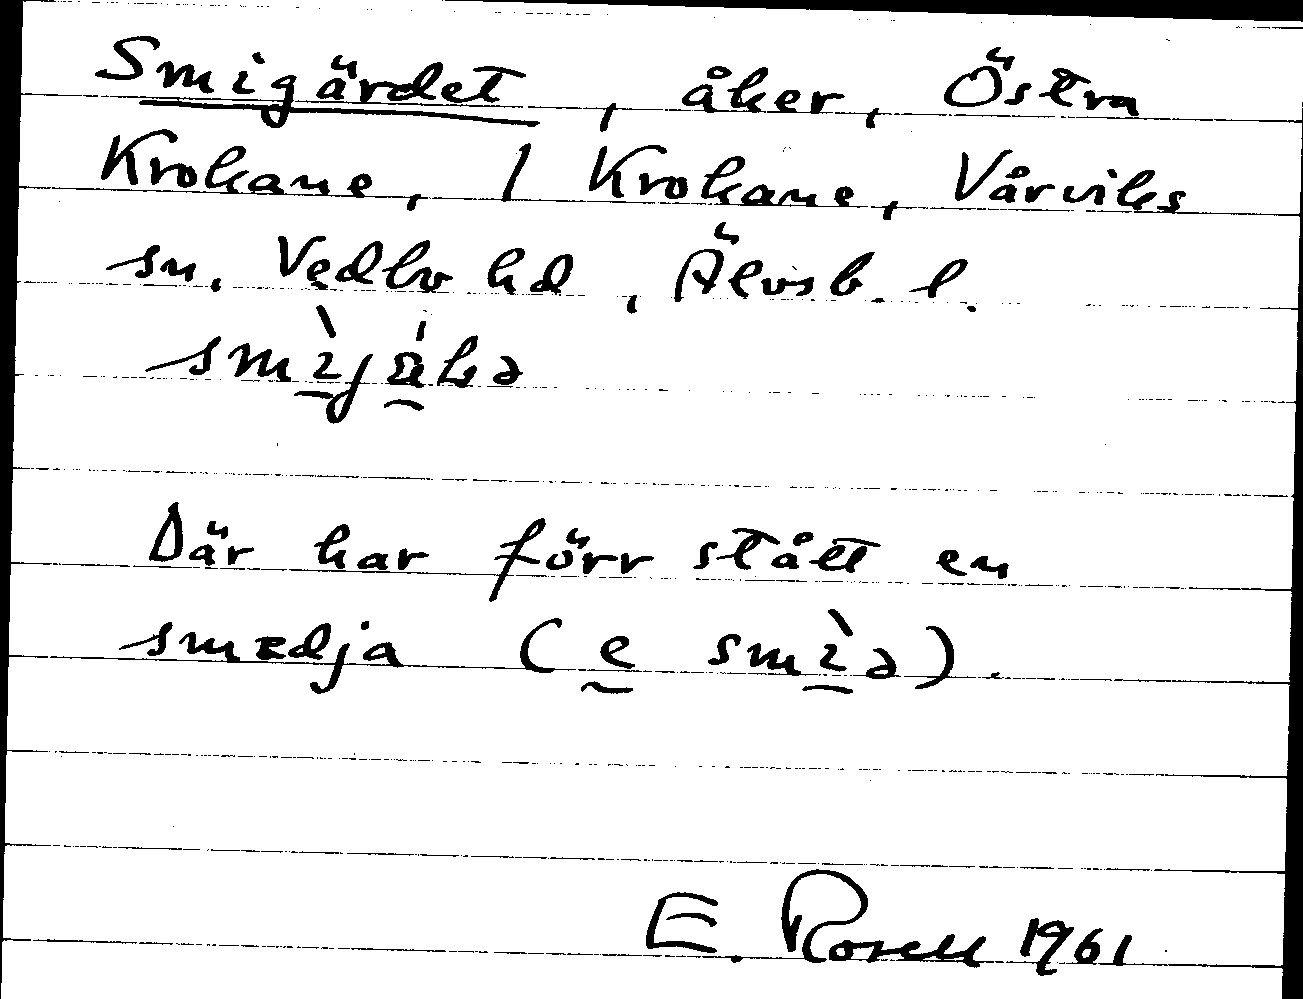 Smigärdet, åker, Östra
Krokane, 1 Krokane, Vårviks
sn. Vedbo hd, Älvsb. l.
Där har förr stått en
smedja (e smìə).
E. Rosell 1961